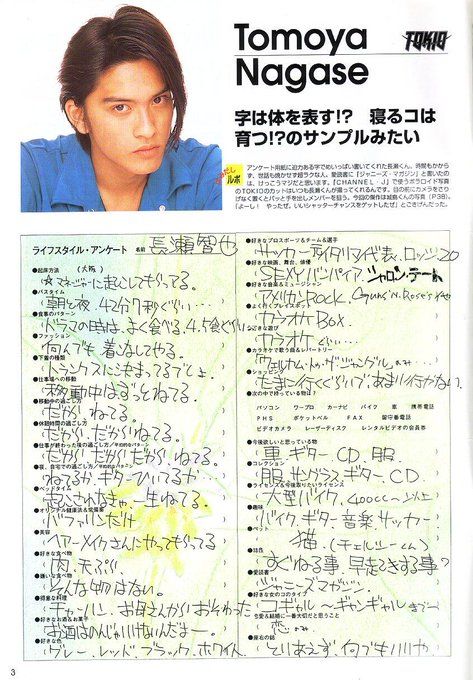 Tomoya
Nagase
TOKIO
字は体を表す!? 寝るコは
育つ!?のサンプルみたい
みだし
ルポ
アンケート用紙に迫力ある字でめいっぱい書いてくれた長瀬くん。時間もかからず、
「ジャニーズ・マガジン」と書いたのは、けっこうマジだと思います。「CHANNEL-J」で使うポラロイド写真
のTOKIOのカットはいつも長瀬くんが撮ってくれるんです。目の前にカメラをさり
げなく置くとパッと手を出しメンバーを狙う。今回の傑作は城島くんの写真(P38)。
「よーし! やったぜ、いいシャッターチャンスをゲットしたぜ」とごきげんだった。
ライフスタイル・アンケート 名前 長瀬智也
●起床方法 (大阪)
☆マネージャーに起こしてもらってる
●バスタイム
朝と夜 42分7秒ぐらい…
●食事のパターン
ドラマの時は、よく食べる 4.5食ぐらい
●ファッション
何んでも 着こなしてやる。
●下着の種類
トランクスにきまってるでしょ。
●仕事場への移動
移動中はずっとねてる。
●移動中の過ごし方
だから、ねてる。
●休憩時間の過ごし方
だから、だからねてる。
●仕事が終わった後の過し方/平均的なパターン
だから! だから! だからねてる。
●夜、自宅での過ごし方/平均的なパターン
ねてるか、ギターひいてるか
●ベッドタイム
起こされなきゃ一生ねてる。
●オリジナル健康法&常備薬
バファリンだけ
●美容
ヘアーメイクさんにやってもらってる
●好きな食べ物
肉、天ぷら、
●嫌いな食べ物
そんな物はない。
●得意な料理
チャーハン、お母さんからおそわった
●好きなお酒&お菓子
お酒はのんじゃいけないんだよー。
●好きな色
グレー、レッド、ブラック、ホワイト
●好きなプロスポーツ&チーム&選手
サッカーイタリア代表、ロッシ20
●好きな映画、舞台、俳優
SEXYバンパイア シャロン・テート
●好きな音楽&ミュージシャン
アメリカンROCK. GUNS N' ROSES
●よく行くプレイスポット
カラオケBOX.
●好きな遊び
カラオケぐらい…
●カラオケで歌う曲&レパートリー
ウェルカム・トゥ・ザ・ジャングル のみ…
●ショッピング
たまに行くぐらいで、あまり行かない。
●次の中で持っている物は?
パソコン ワープロ カーナビ バイク 車 携帯電話
PHS ポケットベル FAX 留守番電話
ビデオカメラ レーザーディスク レンタルビデオの会員券
●今後欲しいと思っている物
車 ギター CD、服
●コレクション
服 サングラス ギター、CD
●ライセンス&今後取りたいライセンス
大型バイク、400cc〜以上
●趣味
バイク、ギター 音楽 サッカー
●ペット
猫、(チェルシーくん)
●特技
すぐねる事 早起きする事?
●愛読書
ジャニーズマガジン、
●好きな女のコのタイプ
コギャル〜ギャンギャルまで
●恋愛&結婚に一番大切だと思うこと
恋のみ
●座右の銘
とりあえず、何でもいいや
3